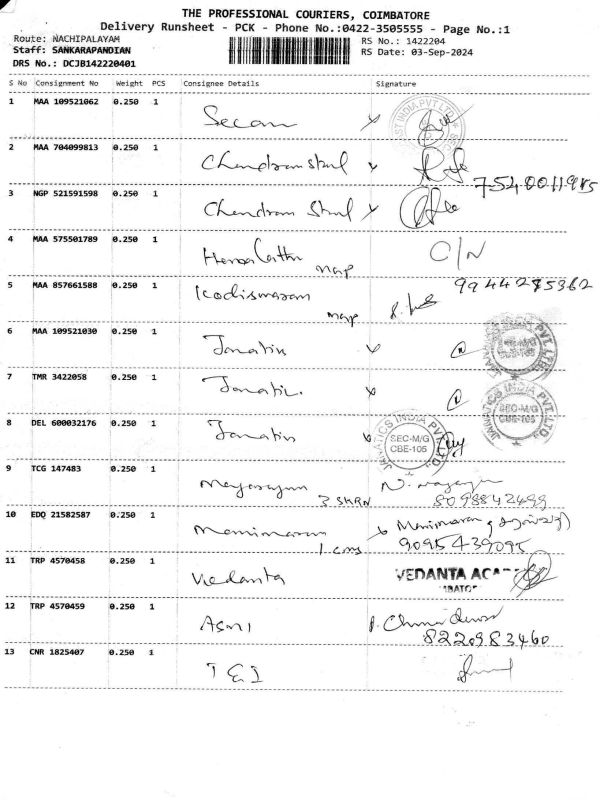 THE PROFESSIONAL COURIERS, COIMBATORE
Delivery Runsheet - PCK - Phone No.:0422-3505555 - Page No.:1
Route: NACHIPALAYAM
RS No.: 1422204
Staff: SANKARAPANDIAN
RS Date: 03-Sep-2024
DRS No.: DCJB142220401
S No Consignment No Weight PCS Consignee Details Signature
1 MAA 109521062 0.250 1
2 MAA 704099813 0.250 1
7540011985
3 NGP 521591598 0.250 1
4 MAA 575501789 0.250 1 C/N
map
5 MAA 857661588 0.250 1 9944275362
Kodiswaran map
6 MAA 109521030 0.250 1 Janatis
JANATICS INDIA PVT. LTD., SEC-M/G CBE-105
7 TMR 3422058 0.250 1 Janatis
JANATICS INDIA PVT. LTD., SEC-M/G CBE-105
8 DEL 600032176 0.250 1 Janatis
JANATICS INDIA PVT. LTD., SEC-M/G CBE-105
9 TCG 147483 0.250 1
8098842499
10 EDQ 21582587 0.250 1 Manimaran Manimaran
9095439095
11 TRP 4570458 0.250 1 Vedanta VEDANTA
12 TRP 4570459 0.250 1 Asmi
8220983460
13 CNR 1825407 0.250 1 TEI